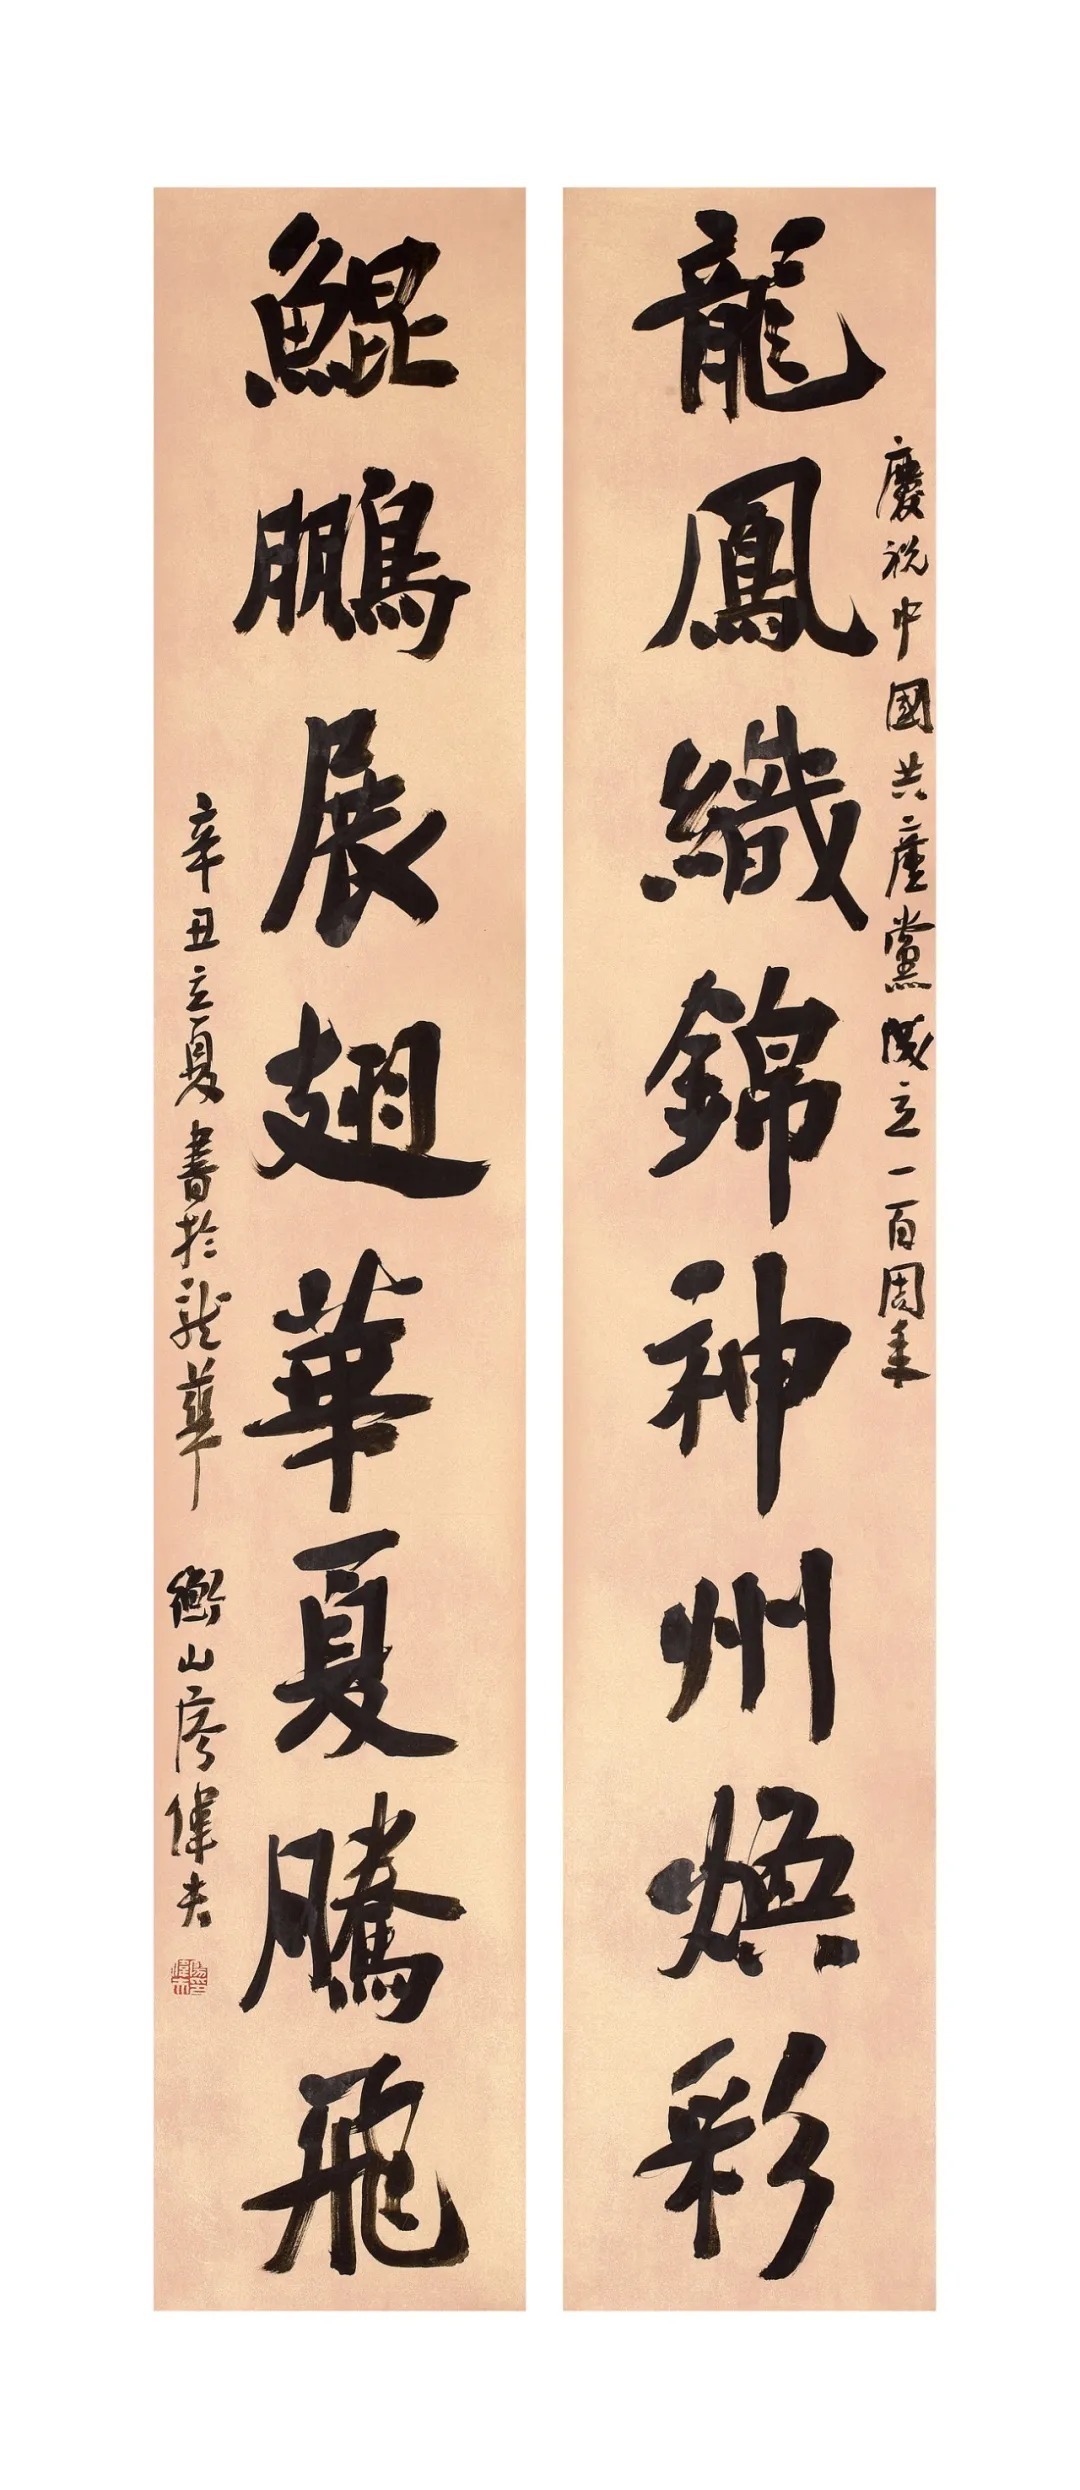 龍鳳織錦神州煥彩
慶祝中國共產黨成立一百周年
鯤鵬展翅華夏騰飛
辛丑立夏書於龍華
衡山廖偉夫